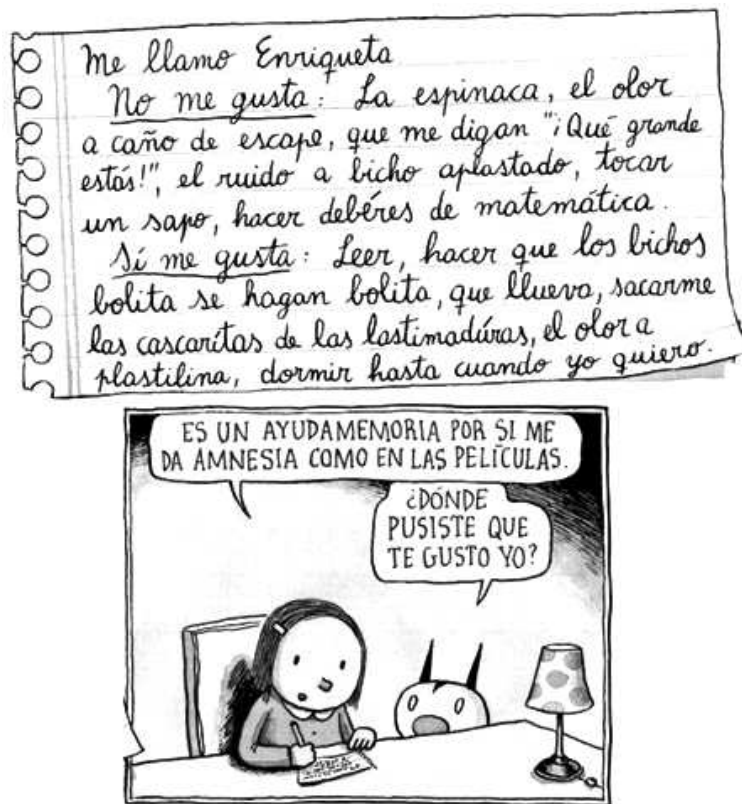 Me llamo Enriqueta
No me gusta: La espinaca, el olor
a caño de escape, que me digan "¡Qué grande
estás!", el ruido a bicho aplastado, tocar
un sapo, hacer debéres de matemática.
Sí me gusta: Leer, hacer que los bichos
bolita se hagan bolita, que llueva, sacarme
las cascaritas de las lastimadúras, el olor a
plastilina, dormir hasta cuando yo quiero.
ES UN AYUDAMEMORIA POR SI ME
DA AMNESIA COMO EN LAS PELÍCULAS.
¿DÓNDE
PUSISTE QUE
TE GUSTO YO?